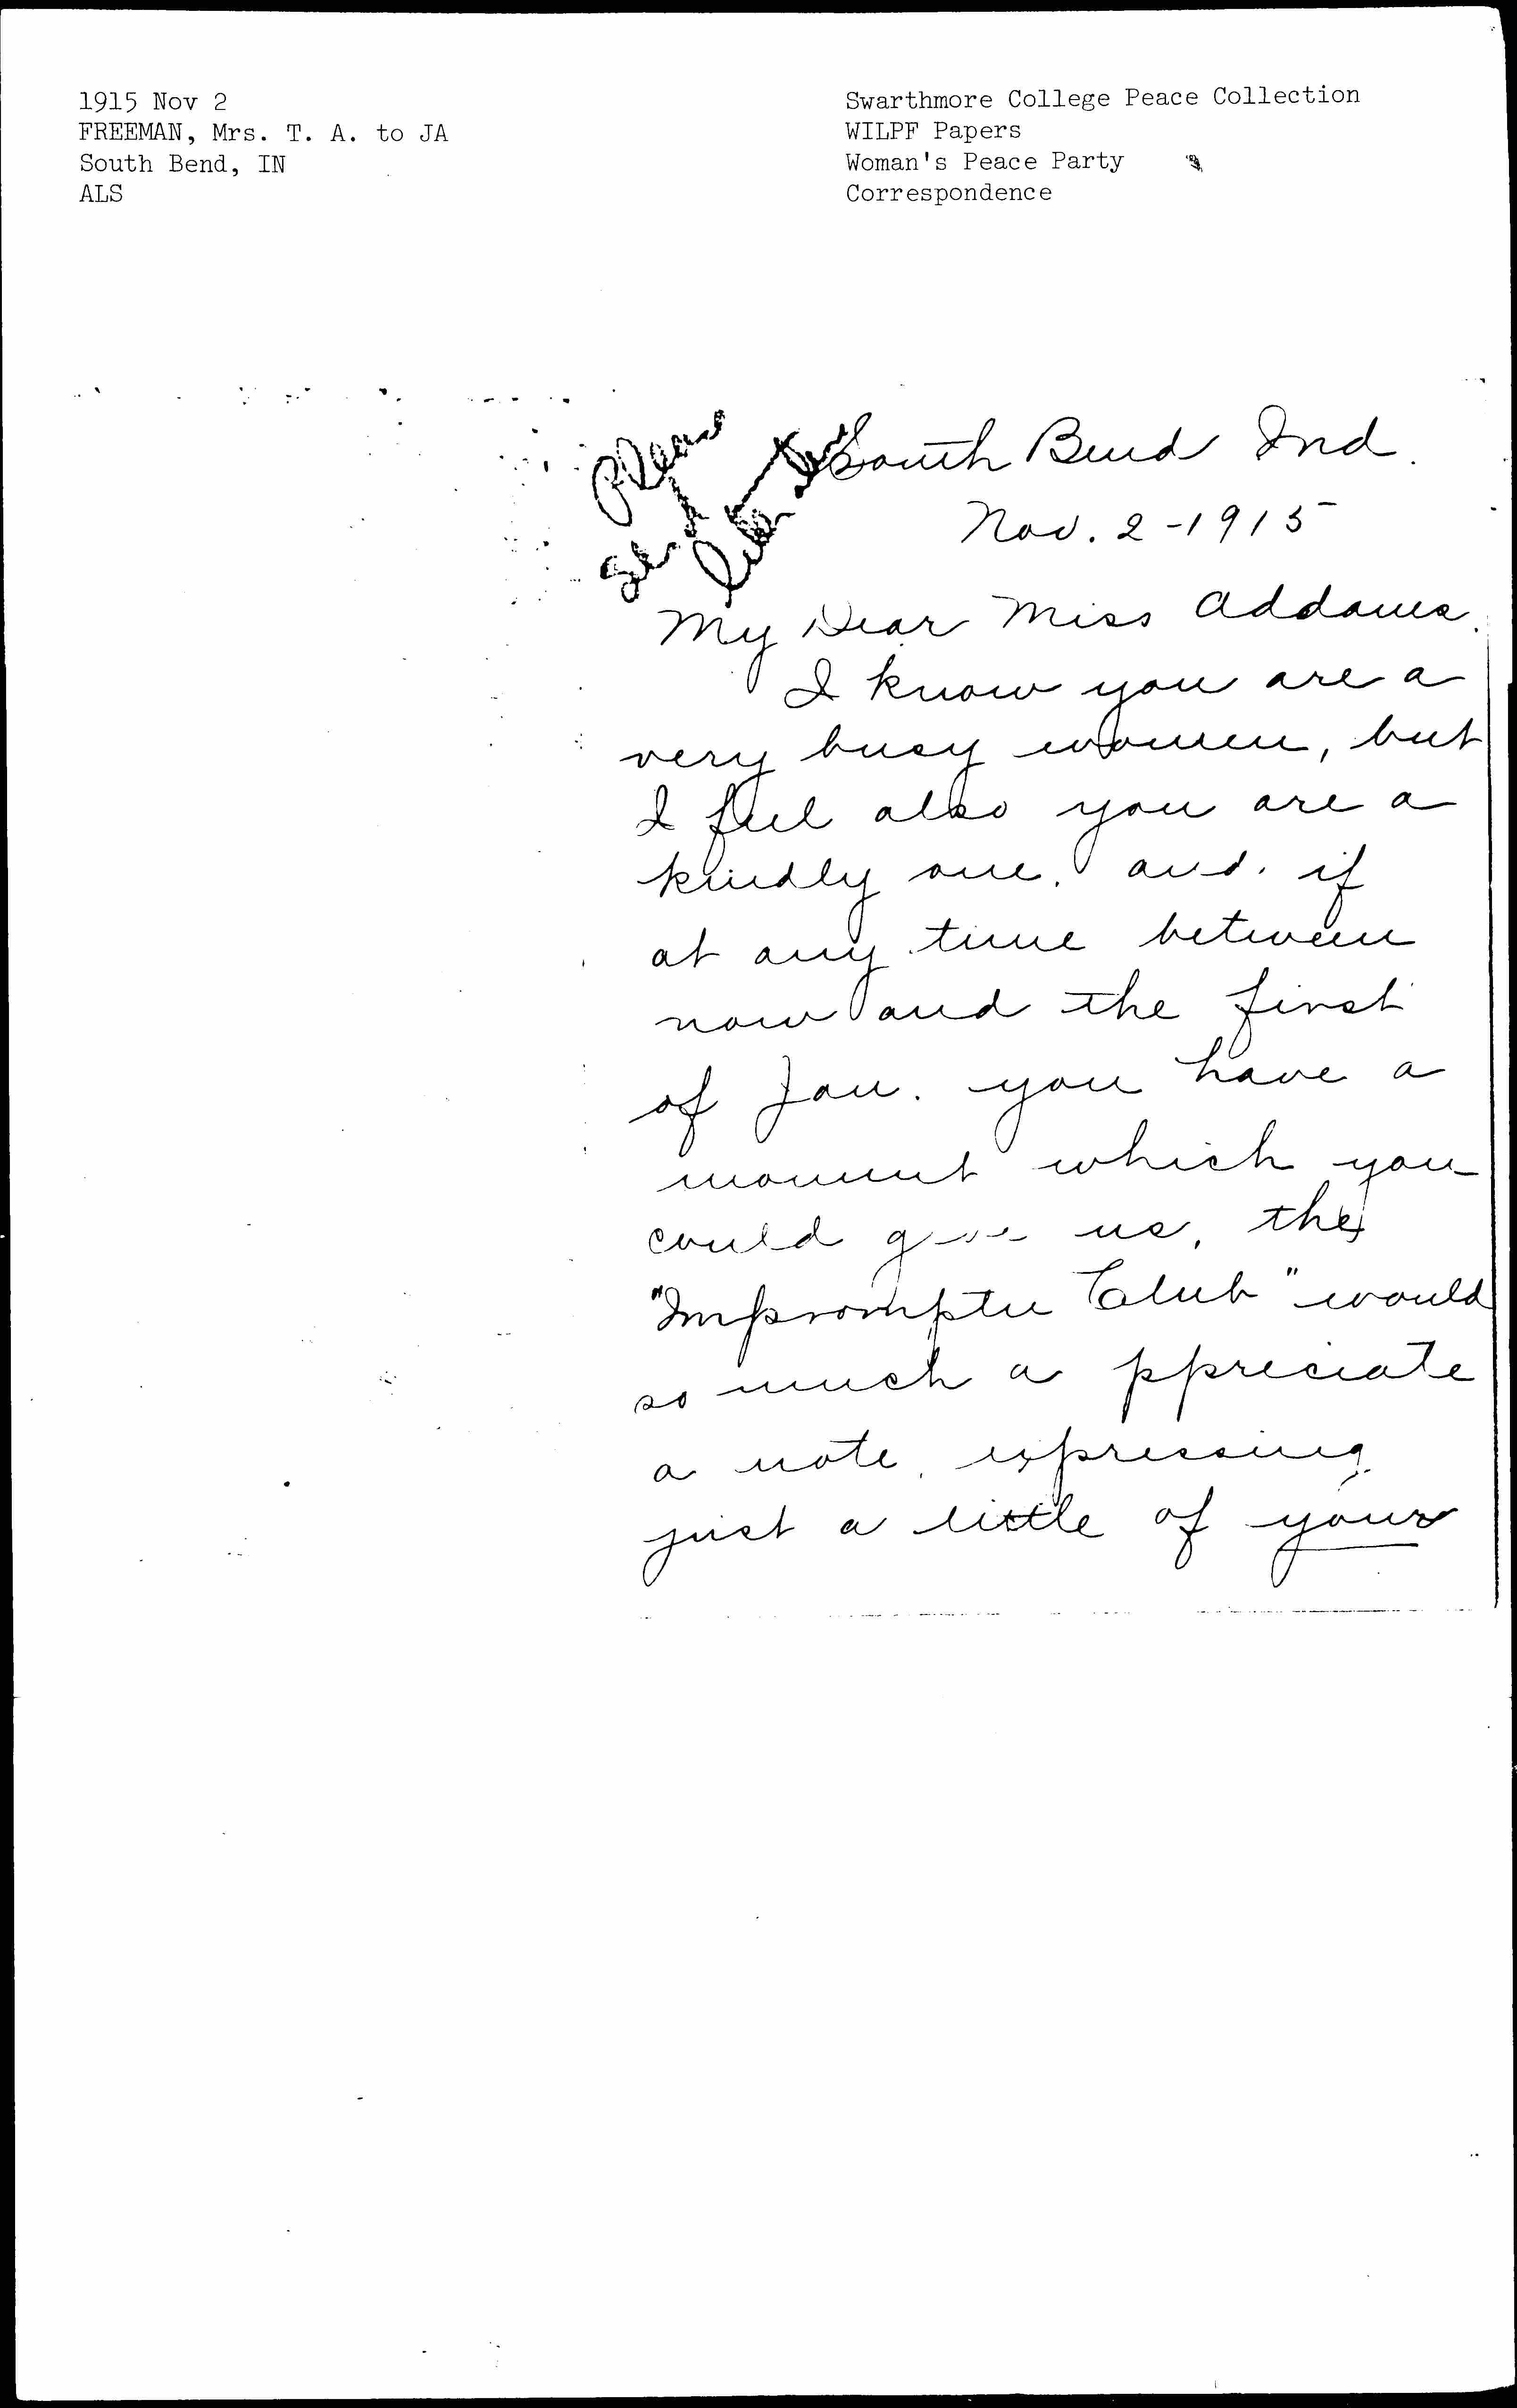 1915 Nov 2
FREEMAN, Mrs. T. A. to JA
South Bend, IN
ALS
Swarthmore College Peace Collection
WILPF Papers
Woman's Peace Party
Correspondence
Please
Send
South Bend Ind.
Nov. 2-1915
My Dear Miss Addams.
I know you are a
very busy women, but
I feel also you are a
kindly one. and. if
at any time between
now and the first
of Jan. you have a
moment which you
could give us, the
"Impromptu Club" would
so much a ppreciate
a note, expressing
just a little of your